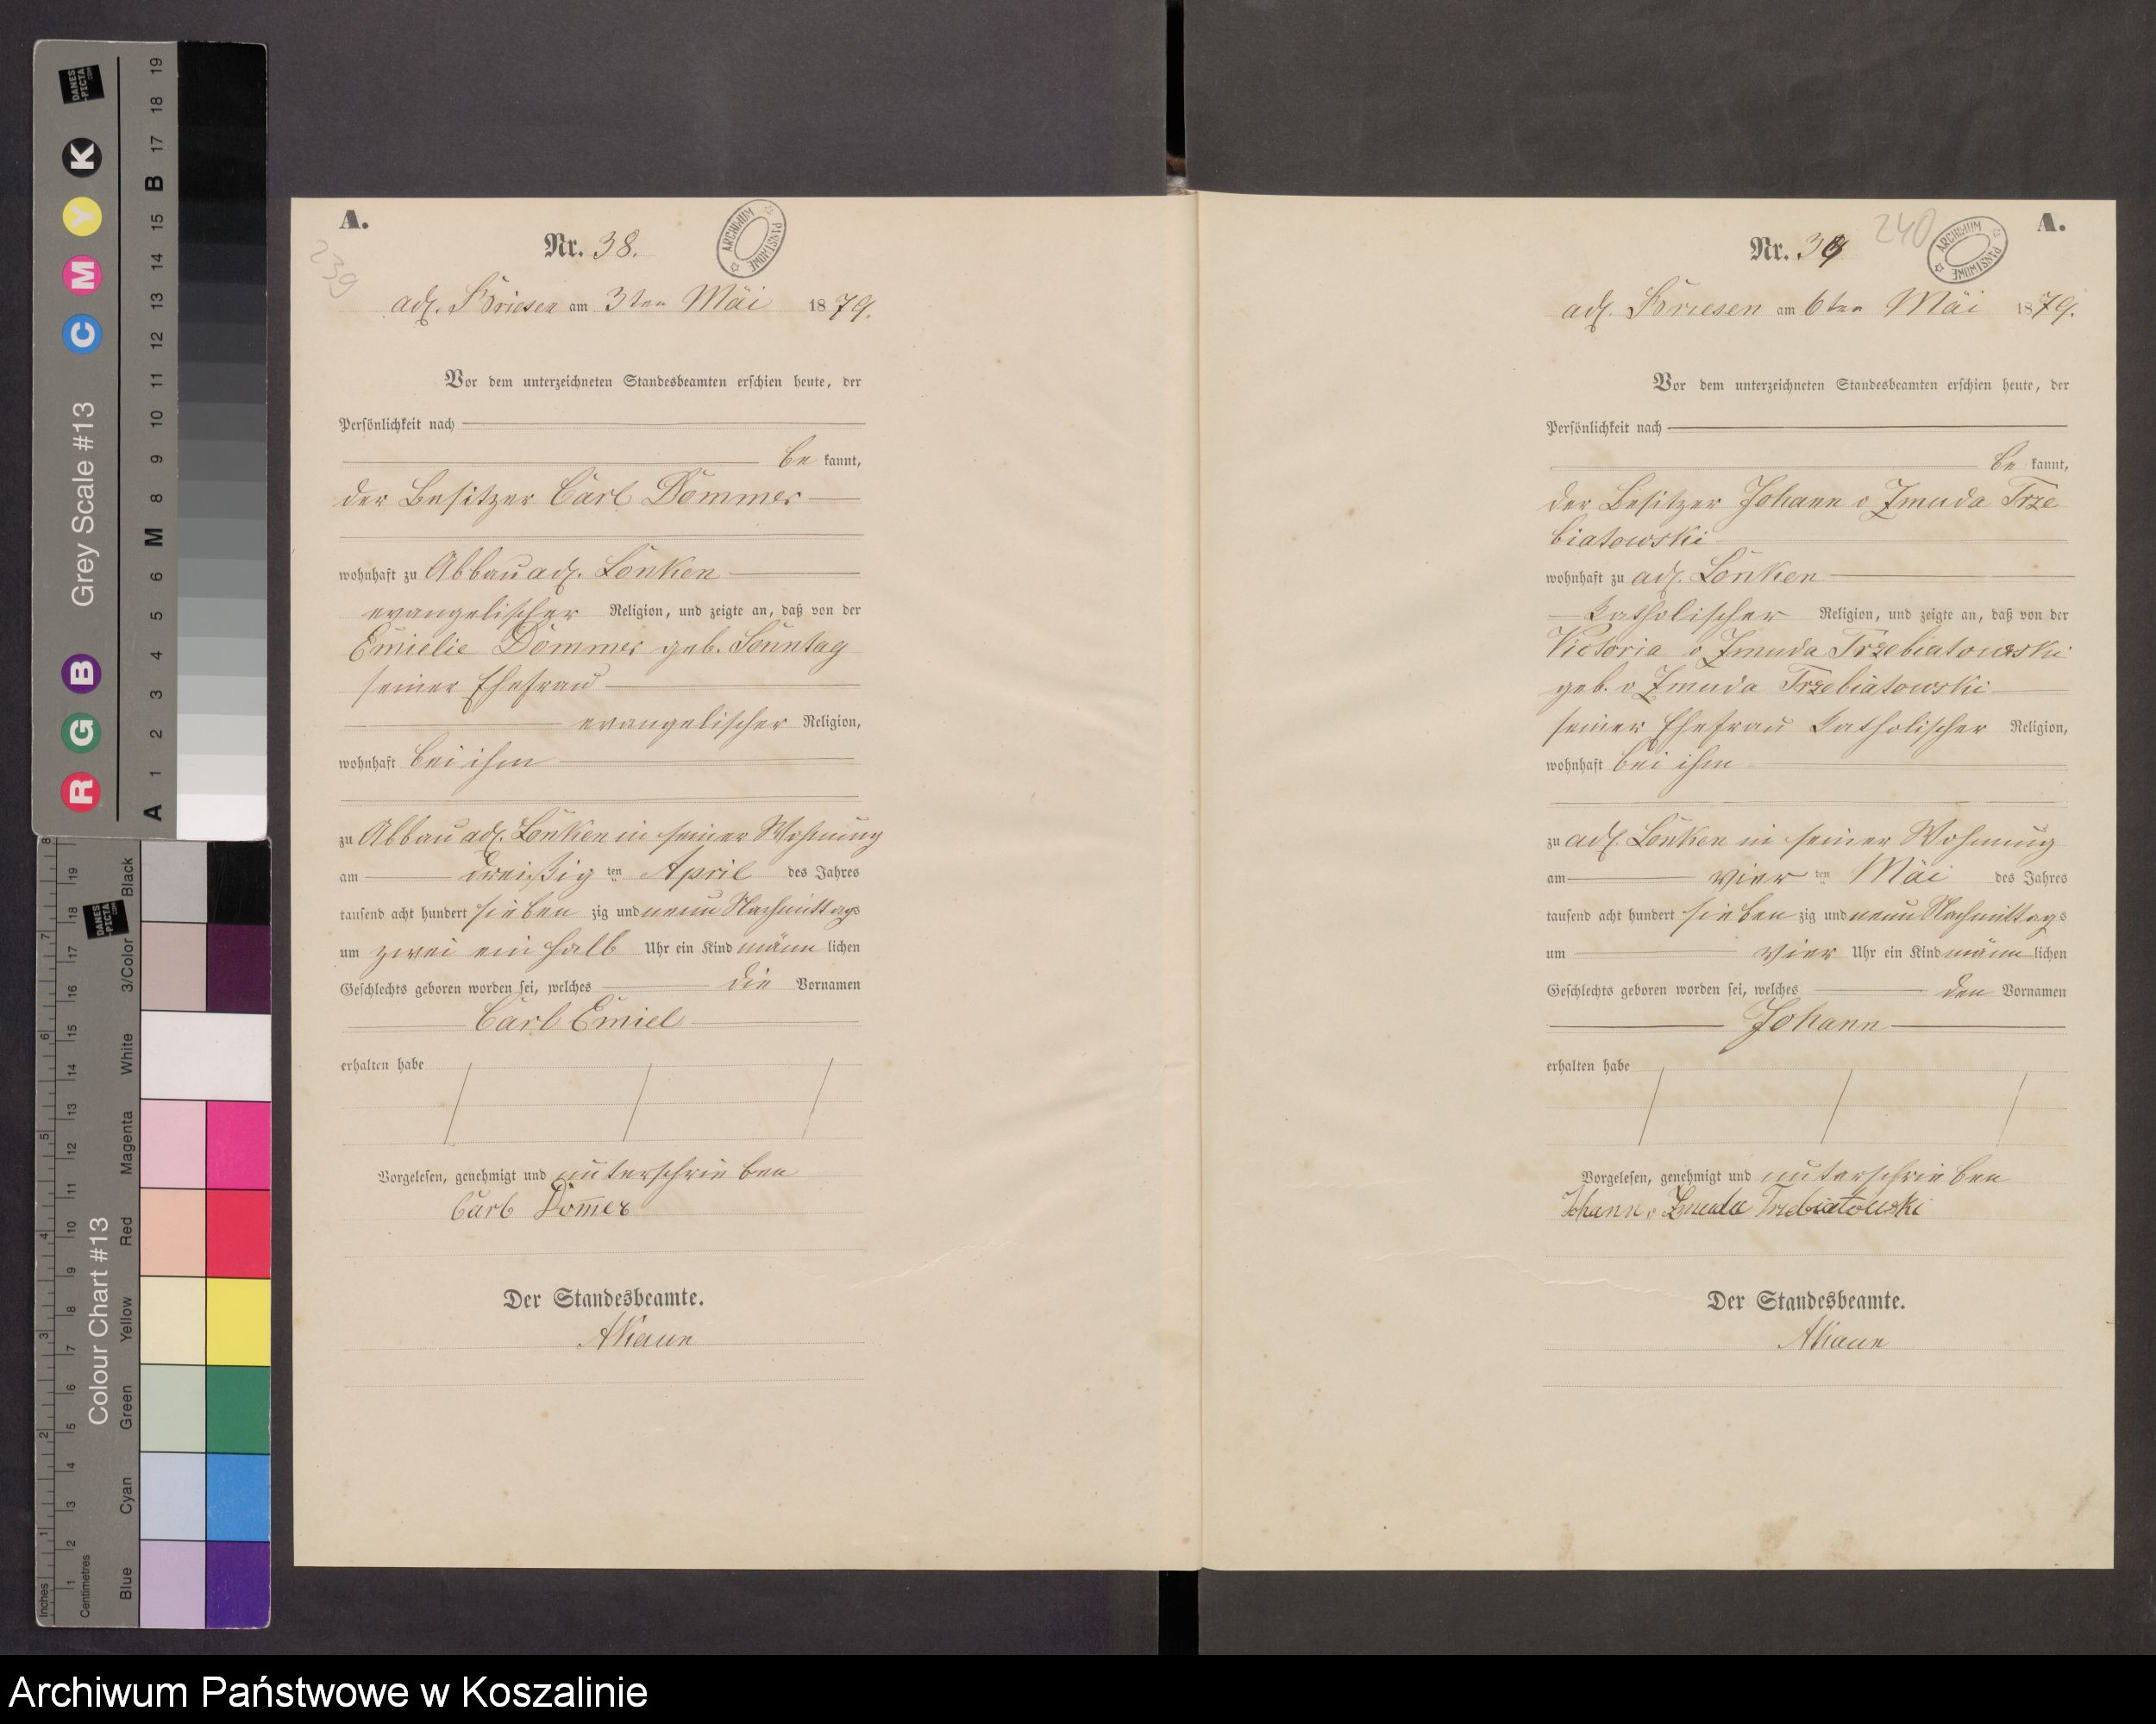 A.
239
Nr. 38.
ARCHIWUM PAŃSTWOWE
adl. Briesen am 3ten Mai 1879.
Vor dem unterzeichneten Standesbeamten erschien heute, der
Persönlichkeit nach
be kannt,
der Besitzer Carl Dommer
wohnhaft zu Abbau adl. Lonken
evangelischer Religion, und zeigte an, daß von der
Emielie Dommer geb. Sonntag
seiner Ehefrau
evangelischer Religion,
wohnhaft bei ihm
zu Abbau adl. Lonken in seiner Wohnung
am dreißig ten April des Jahres
tausend acht hundert sieben zig und neun Nachmittags
um zwei ein halb Uhr ein Kind männ lichen
Geschlechts geboren worden sei, welches die Vornamen
Carl Emiel
erhalten habe
Vorgelesen, genehmigt und unterschrieben
Carl Dom̅er
Der Standesbeamte.
A.
240
Nr. 39
ARCHIWUM PAŃSTWOWE
adl. Briesen am 6ten Mai 1879.
Vor dem unterzeichneten Standesbeamten erschien heute, der
Persönlichkeit nach
be kannt,
der Besitzer Johann v Zmuda Trze
biatowski
wohnhaft zu adl. Lonken
Katholischer Religion, und zeigte an, daß von der
Victoria v Zmuda Trzebiatowski
geb. v Zmuda Trzebiatowski
seiner Ehefrau Katholischer Religion,
wohnhaft bei ihm
zu adl. Lonken in seiner Wohnung
am vier ten Mai des Jahres
tausend acht hundert sieben zig und neun Nachmittags
um vier Uhr ein Kind männ lichen
Geschlechts geboren worden sei, welches den Vornamen
Johann
erhalten habe
Vorgelesen, genehmigt und unterschrieben
Johann v Zmuda Trzebiatowski
Der Standesbeamte.
Grey Scale #13
R G B C M Y K
A 1 2 3 4 5 6 M 8 9 10 11 12 13 14 15 B 17 18 19
DANES-PICTA.COM
Colour Chart #13
Blue Cyan Green Yellow Red Magenta White 3/Color Black
Inches 1 2 3 4 5 6 7 8
Centimetres 1 2 3 4 5 6 7 8 9 10 11 12 13 14 15 16 17 18 19
DANES-PICTA.COM
Archiwum Państwowe w Koszalinie